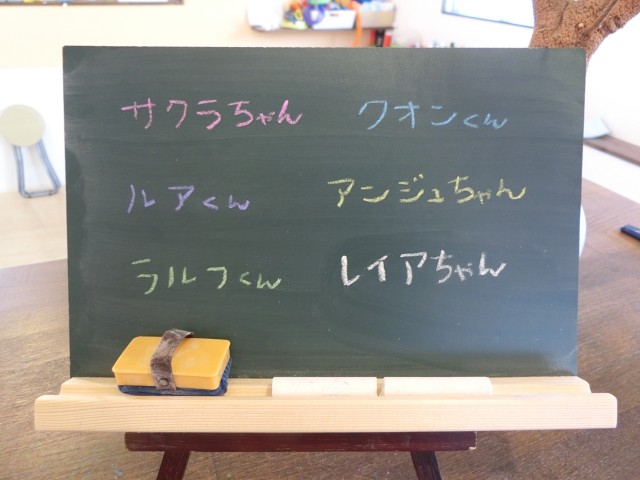 サクラちゃん クオンくん
ルアくん アンジュちゃん
ラルフくん レイアちゃん